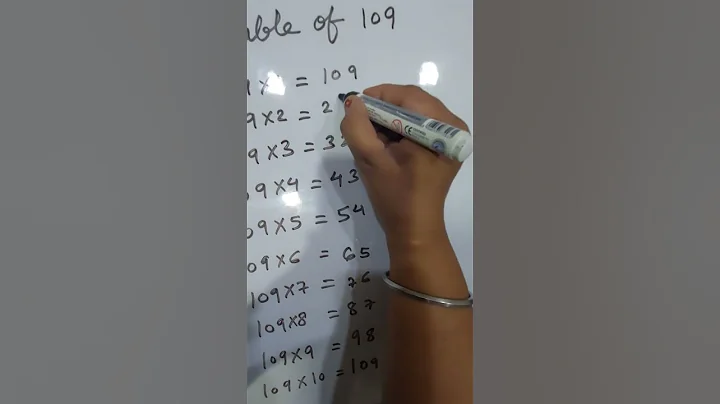 able of 109
9 X = 109
9 X 2 = 2
9 X 3 = 32
9 X 4 = 43
09 X 5 = 54
109 X 6 = 65
109 X 7 = 76
109 X 8 = 87
109 X 9 = 98
109 X 10 = 109